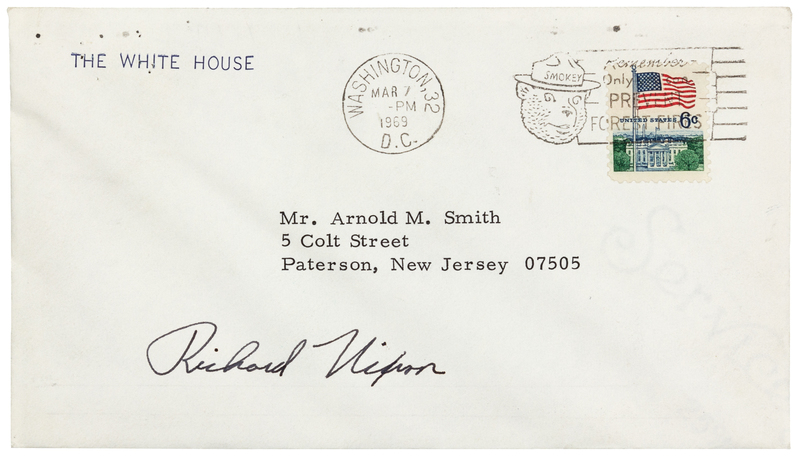 THE WHITE HOUSE
WASHINGTON, 32
MAR 7
-PM
1969
D.C.
SMOKEY
Remember
Only
PRE
FOREST FIRES
UNITED STATES 6c
Mr. Arnold M. Smith
5 Colt Street
Paterson, New Jersey 07505
Richard Nixon